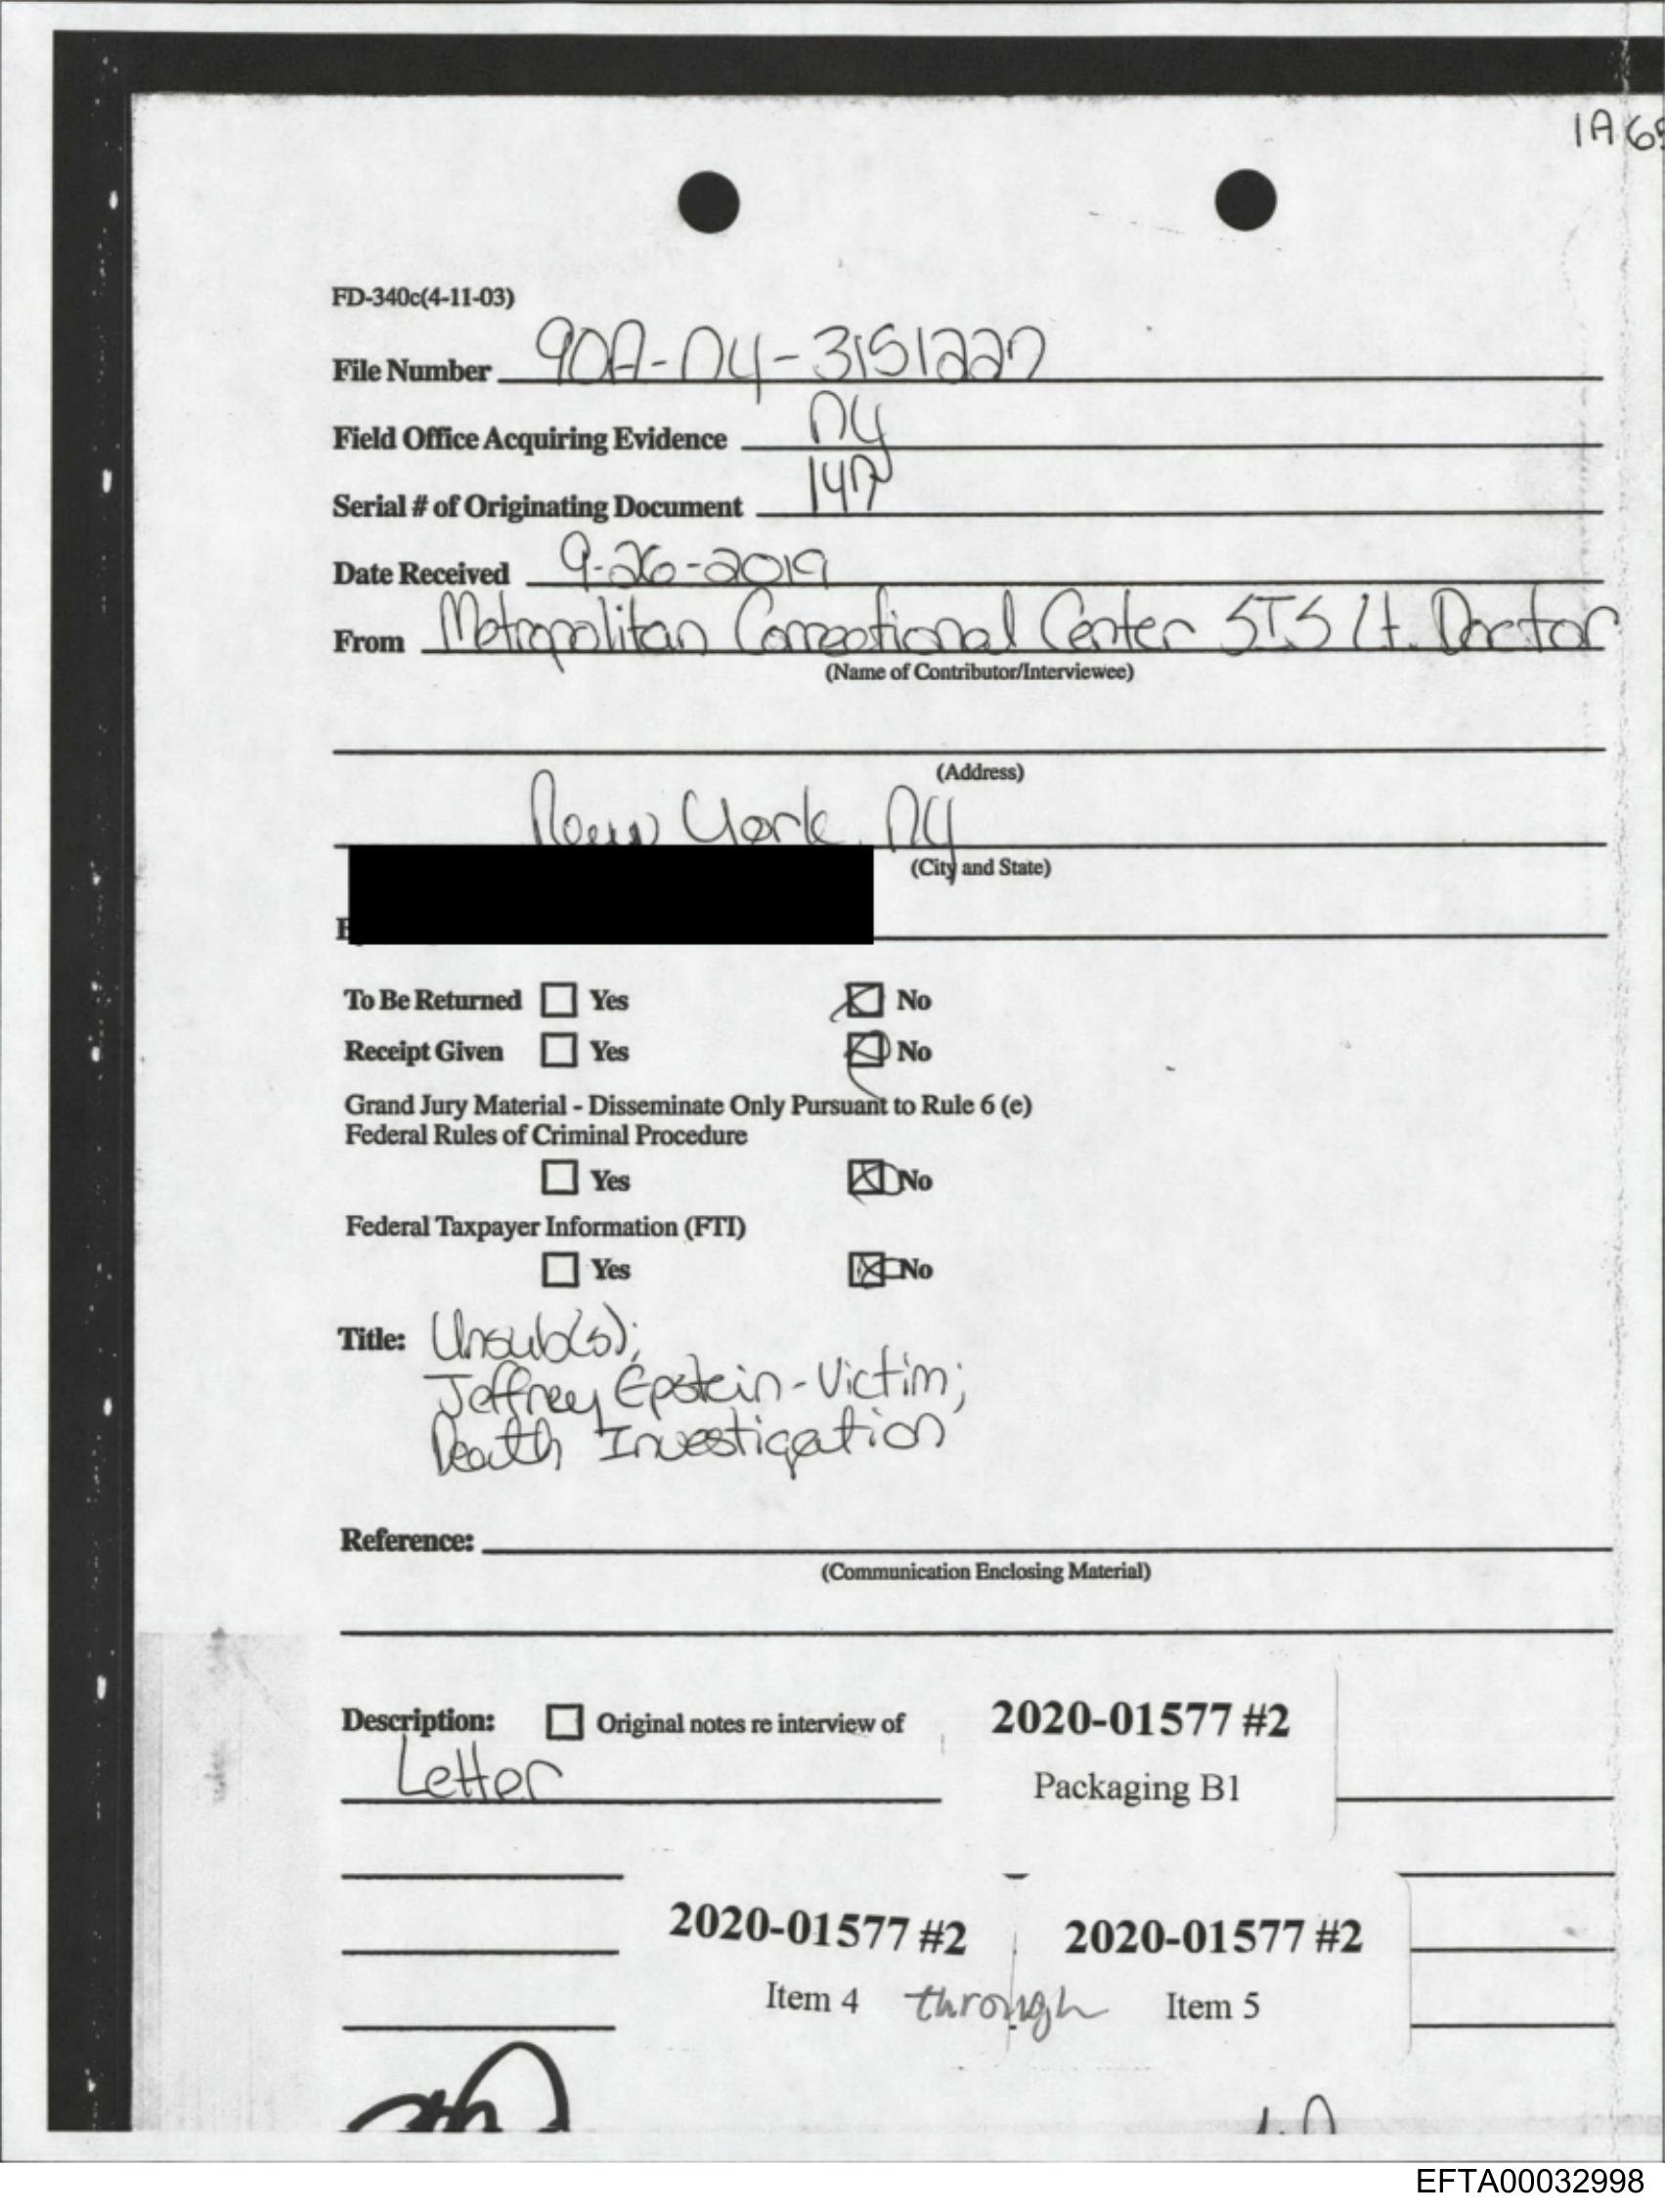 1A 65
FD-340c(4-11-03)
File Number 90A-NY-3151227
Field Office Acquiring Evidence NY
Serial # of Originating Document 147
Date Received 9-26-2019
From Metropolitan Correctional Center SIS Lt. Doctor
(Name of Contributor/Interviewee)
(Address)
New York, NY
(City and State)
To Be Returned Yes No
Receipt Given Yes No
Grand Jury Material - Disseminate Only Pursuant to Rule 6 (e)
Federal Rules of Criminal Procedure
Yes No
Federal Taxpayer Information (FTI)
Yes No
Title: Unsub(s);
Jeffrey Epstein-Victim;
Death Investigation
Reference:
(Communication Enclosing Material)
Description: Original notes re interview of 2020-01577 #2
Letter Packaging B1
2020-01577 #2 2020-01577 #2
Item 4 through Item 5
EFTA00032998